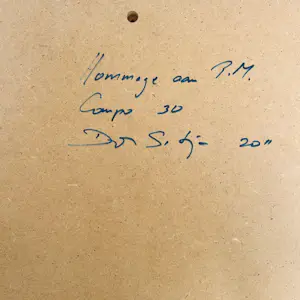 Hommage aan P.M.
Compo 30
2011